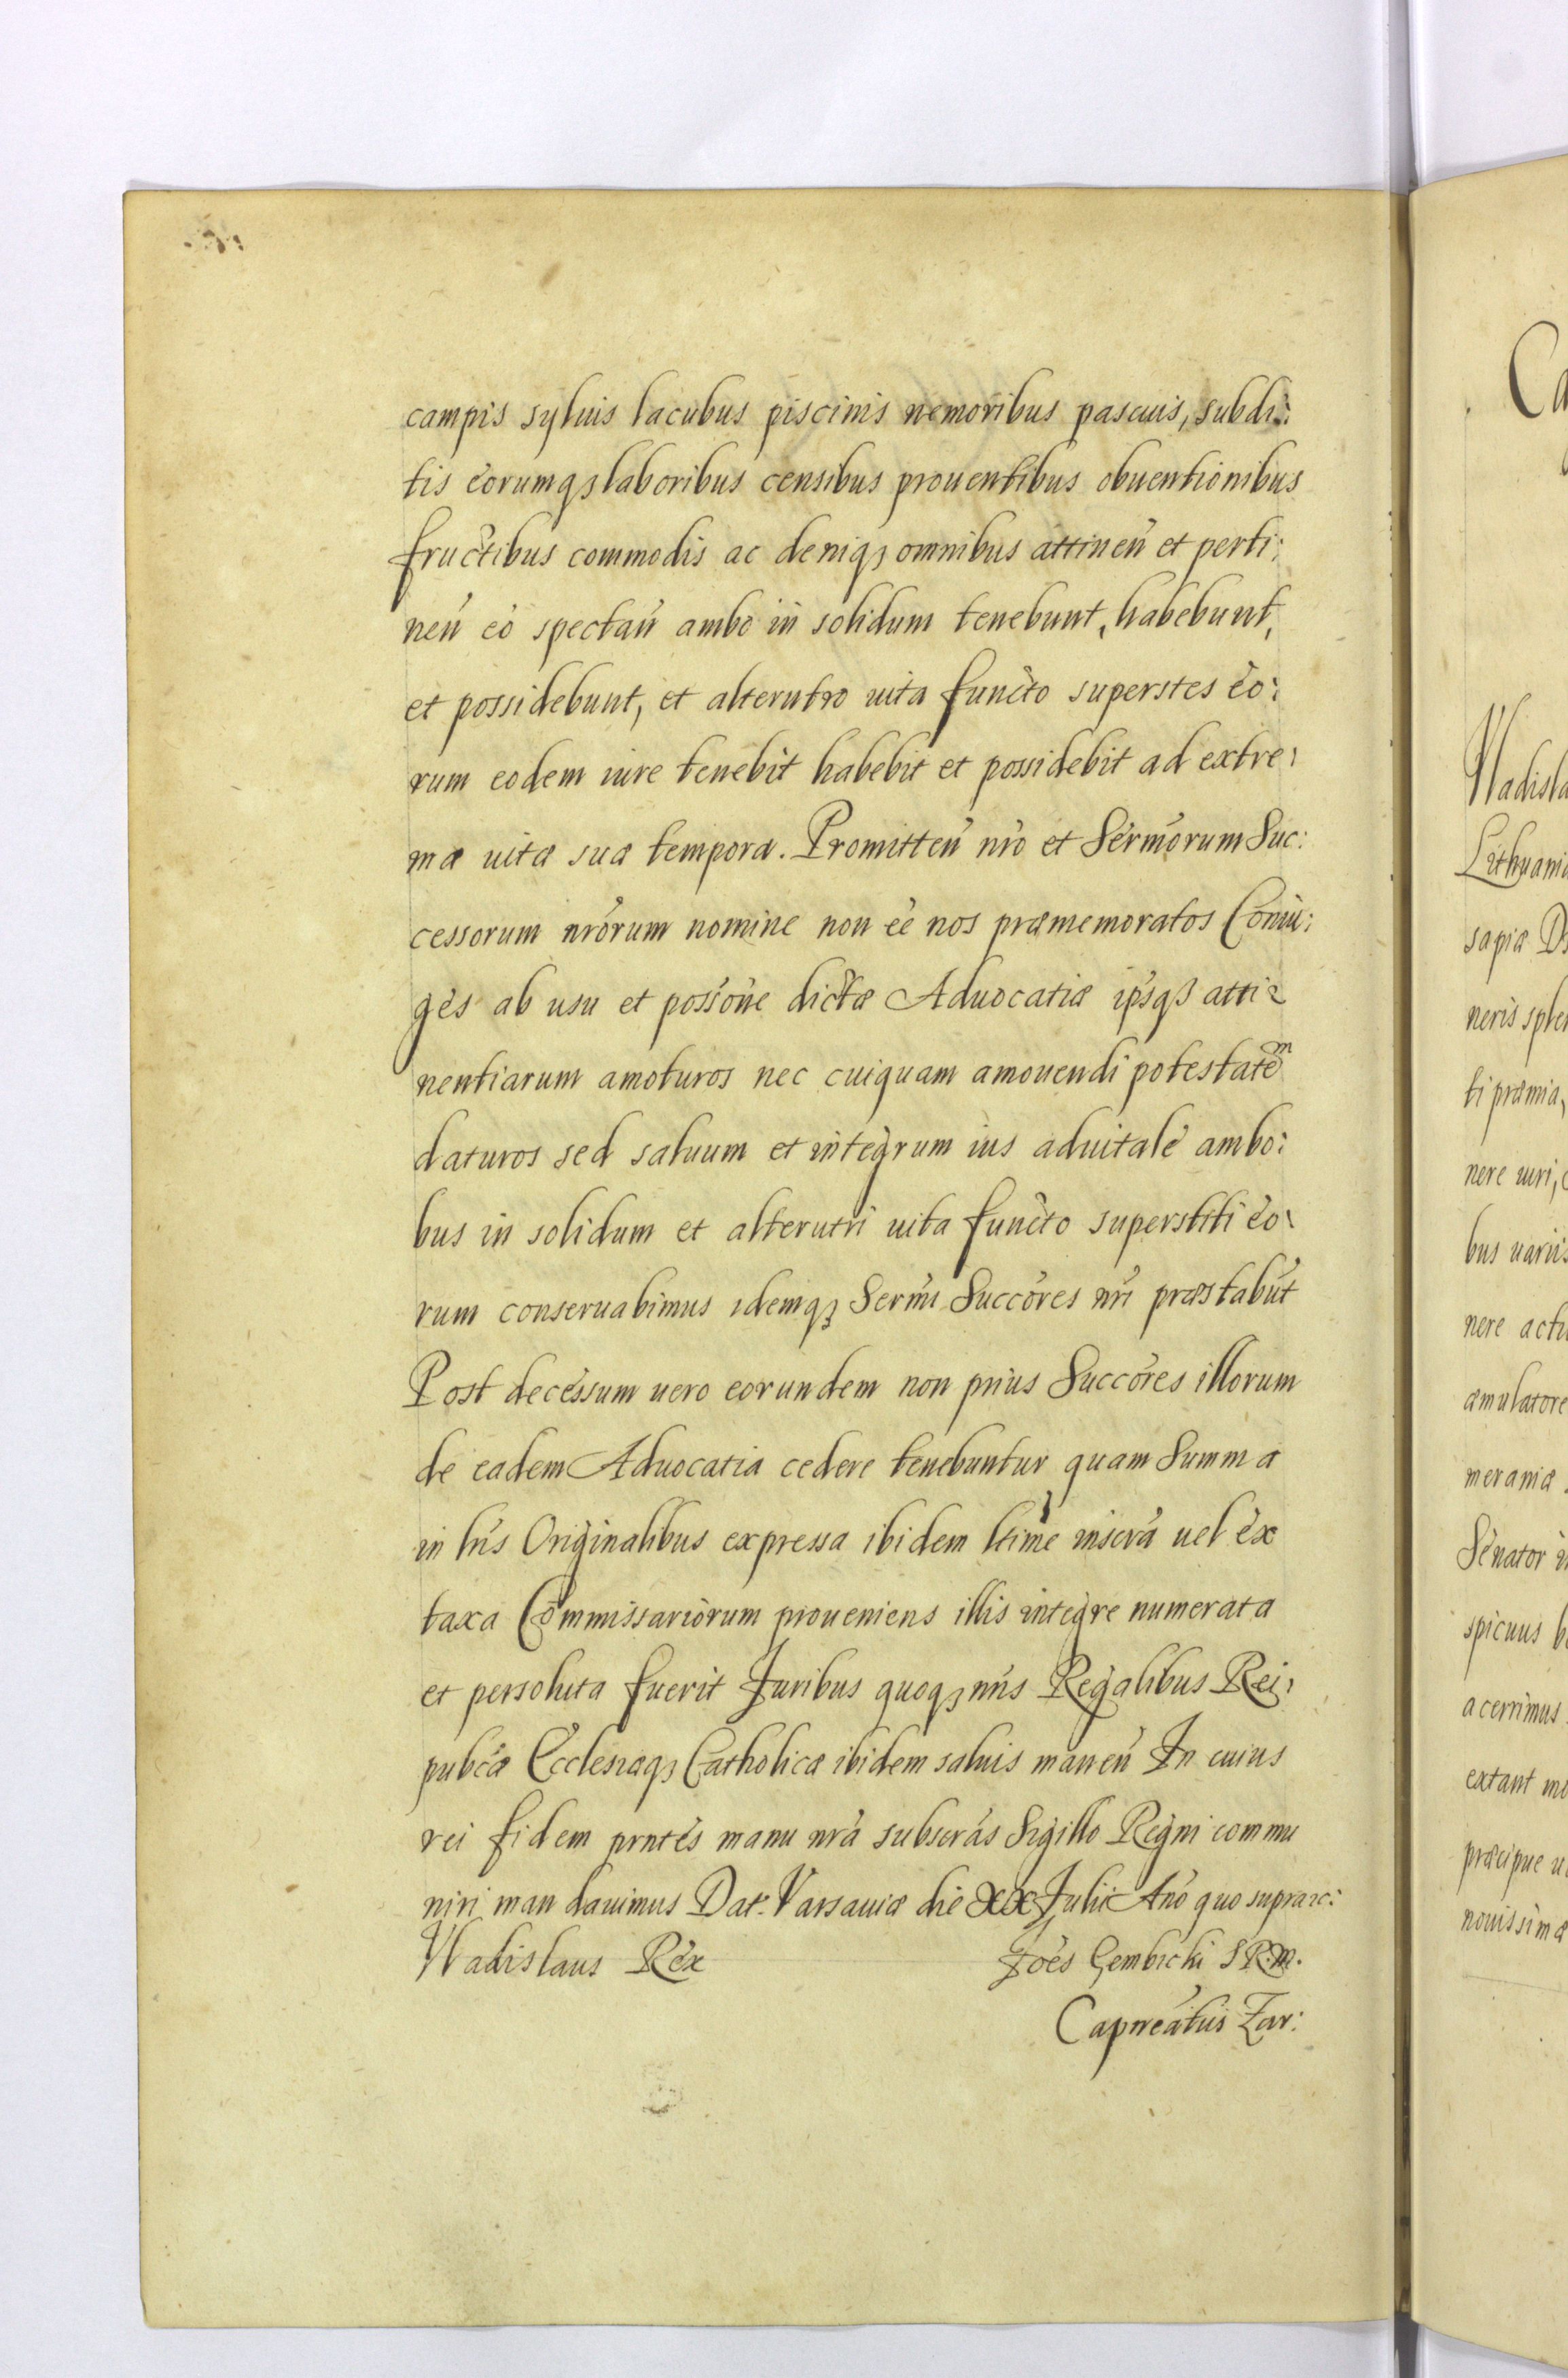 campis syluis lacubus piscinis nemoribus pascuis, subdi:
tis eorumqȝ laboribus censibus prouentibus obuentionibus
fructibus commodis ac deniqȝ omnibus attineñ et perti:
neñ eò spectañ ambo in solidum tenebunt, habebunt,
et possidebunt, et alterutro uita functo superstes eo:
rum eodem iure tenebit habebit et possidebit ad extre:
ma uitæ suæ tempora. Promitteñ nr̃o et Serm̃orum Suc:
cessorum nr̃orum nomine non eẽ nos præmemoratos Coniu:
ges ab usu et possõne dictæ Aduocatiæ ip̃sqȝ atti:
nentiarum amoturos nec cuiquam amouendi potestatem
daturos sed saluum et integrum ius aduitale ambo:
bus in solidum et alterutri uita functo superstiti eo:
rum conseruabimus idemqȝ Serm̃i Succõres nr̃i præstabũt
Post decessum uero eorundem non prius Succõres illorum
de eadem Aduocatia cedere tenebuntur quam Summa
in lr̃is Originalibus expressa ibidem ltime inscr̃a uel ex
taxa Commissariorum proueniens illis integre numerata
et persoluta fuerit Juribus quoqȝ nr̃is Regalibus Rei:
pub̃cæ Ecclesiæqȝ Catholicæ ibidem saluis maneñ In cuius
rei fidem prñtes manu nr̃a subscr̃as Sigillo Regni commu
niri mandauimus Dat: Varsauiæ die XIX Julii Año quo supra ꝛc:
Vladislaus Rex
Joẽs Gembicki S R. M.
Capneatus Zar:
Ca
Vladisla
Lithuaniæ
sapia D
neris splen
ti præmia,
nere uiri, c
bus uariis
nere actu
æmulatore
meraniæ.
Senator i
spicuus b
acerrimus
extant mo
præcipue u
nouissimæ